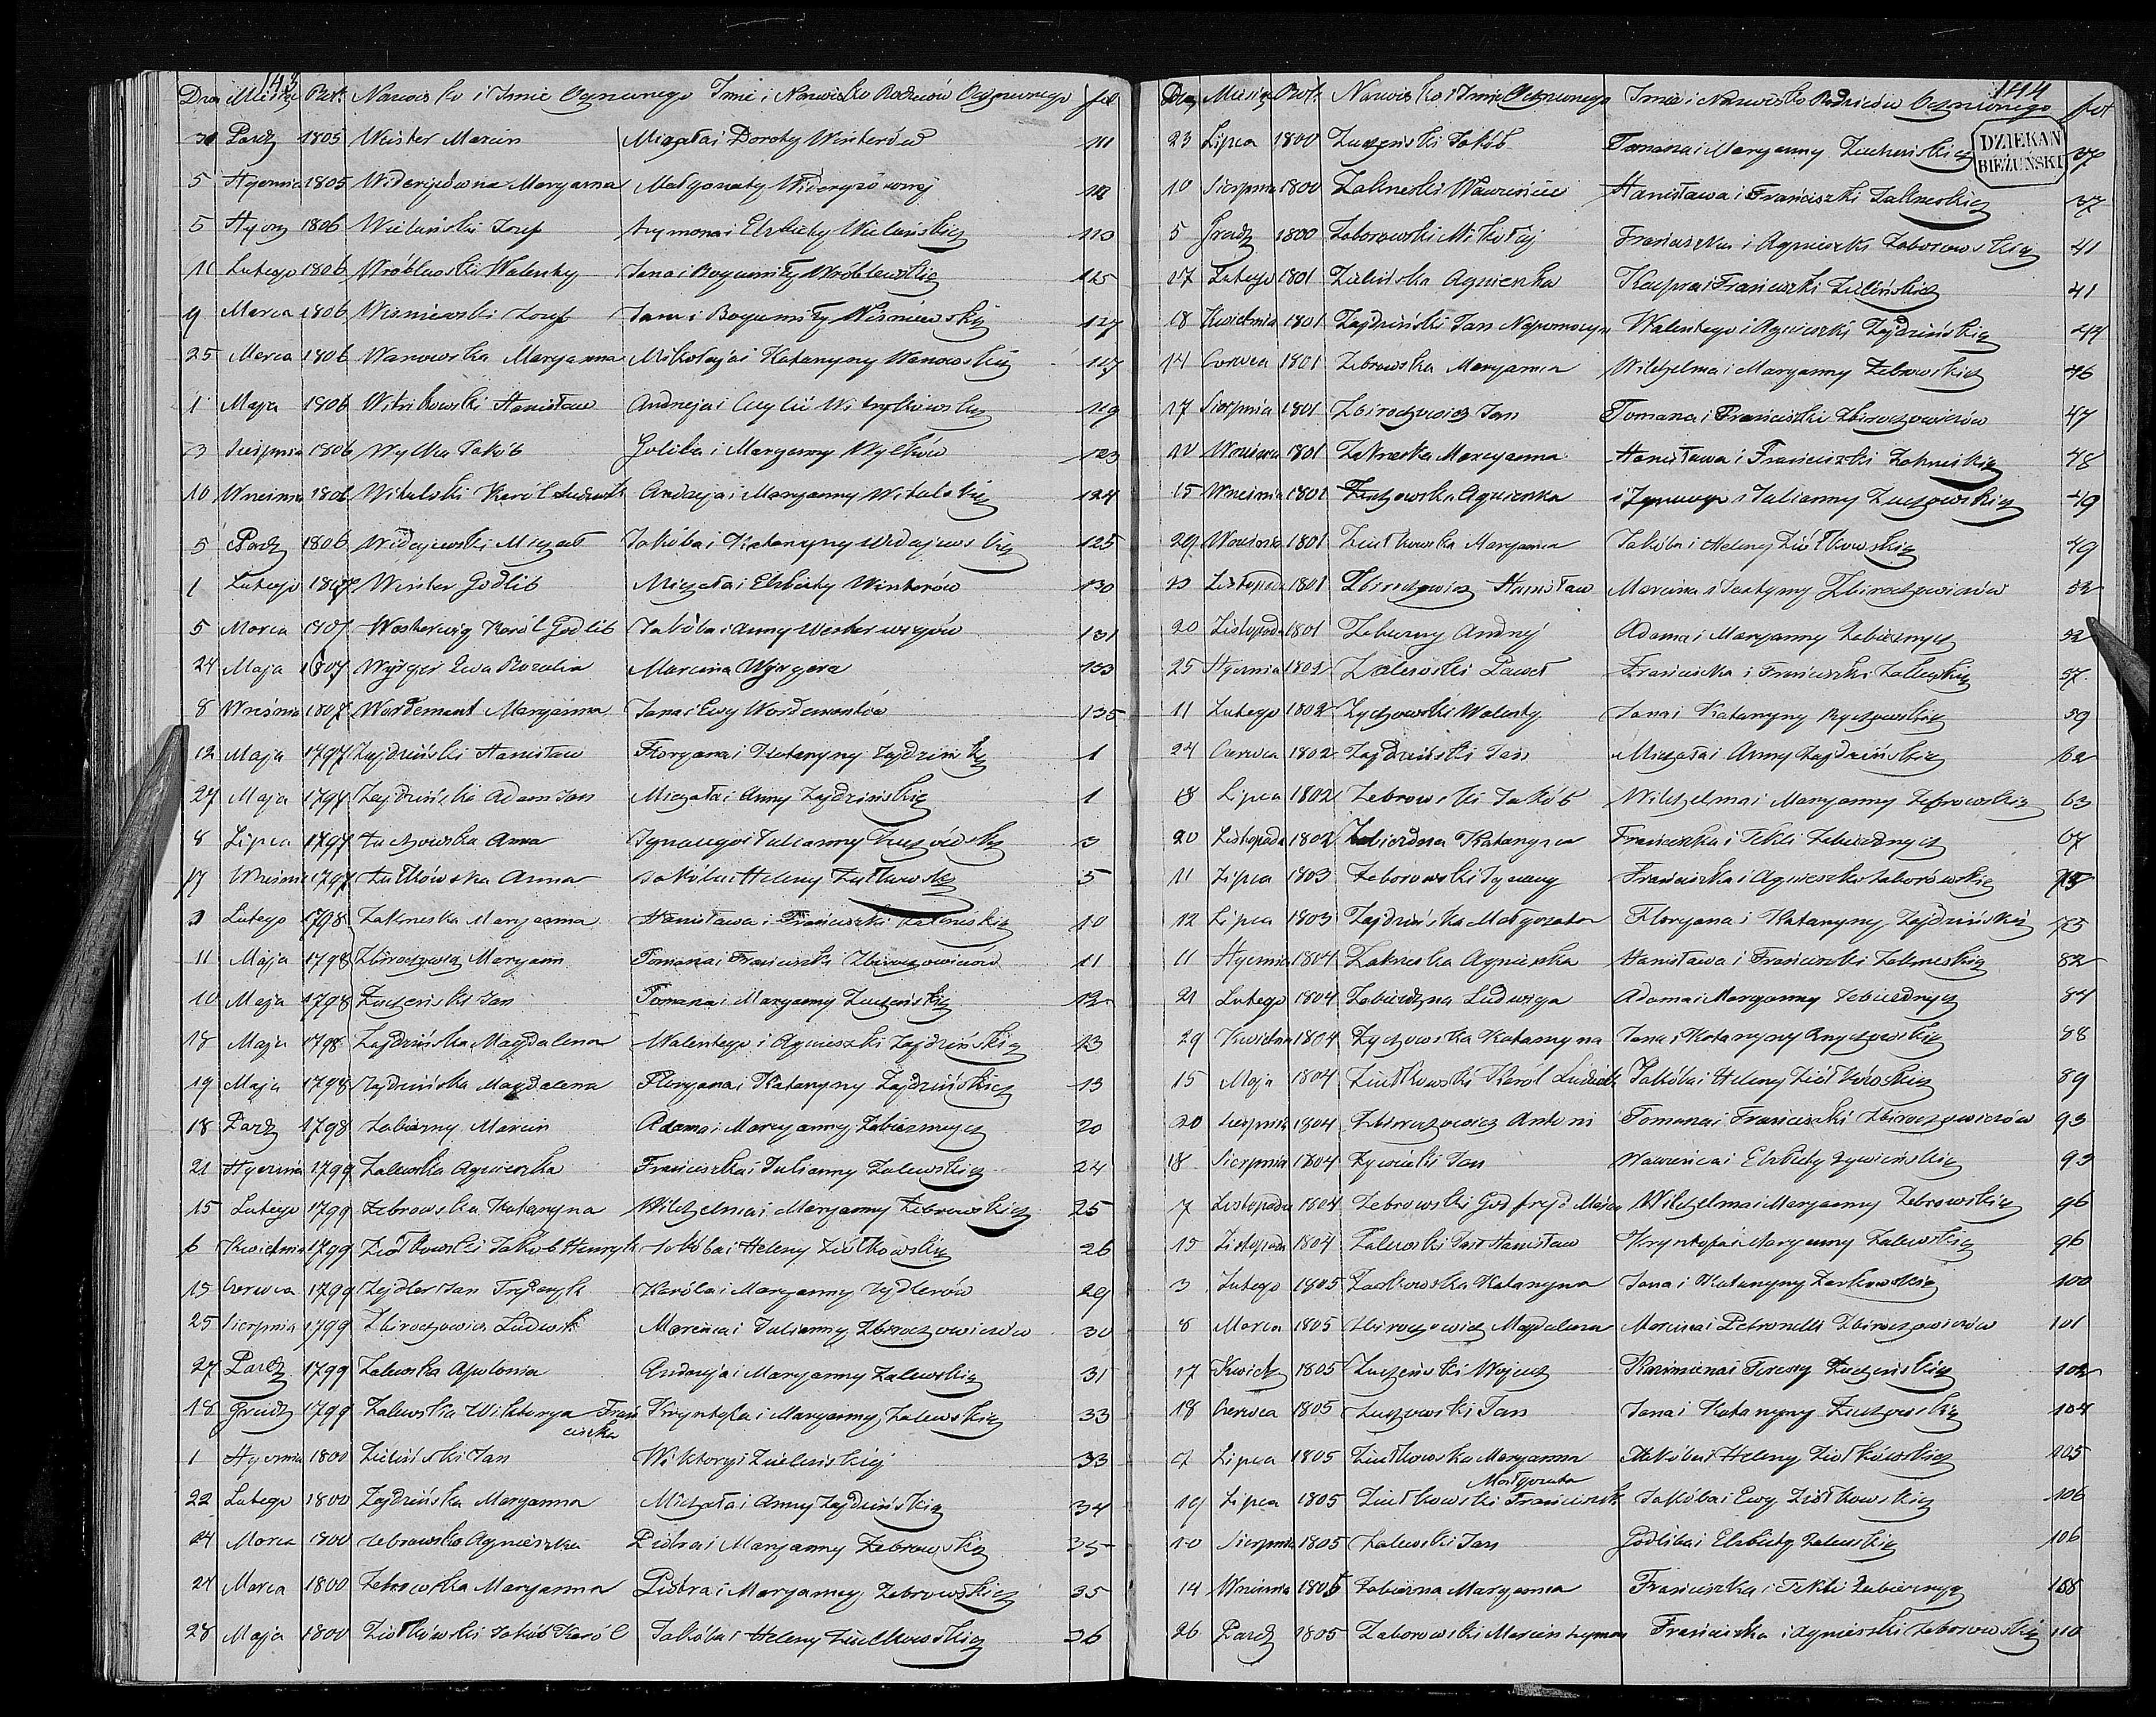 143
Dzień Miesiąc Rok Nazwisko i Imie Ochrzconego Imie i Nazwisko Rodziców Ochrzconego fol
Pazdz 1805 Winter Marcin Michała i Doroty Winterów 111
5 Stycznia 1805 Maryanna Małgorzaty
5 Stycz 1806 Wieluński Josef Szymona i Elzbiety Wieluńskich 113
11 Lutego 1806 Wróblewski Walenty Jana i Bogumiły Wróblewskich 115
9 Marca 1806 Wiśniewski Josef Jana i Bogumiły Wiśniewskich 117
25 Marca 1806 Wanowska Maryanna Mikołaja i Katarzyny Wanowskich 117
1 Maja 1806 Witrikowski Stanisław Andrzeja i Cecylii 119
3 Sierpnia 1806 Wylka Jakób Goliba i Maryanny Wylków 123
10 Wrześnie 1806 Witulski Karól Ludwik Andrzeja i Maryanny Witulskich 124
5 Pazdz 1806 Widajewski Michał Jakóba i Katarzyny Widajewskich 125
1 Lutego 1807 Winter Godlib Michała i Elzbiety Winterów 130
5 Marca 1807 Karól Godlib Jakóba i Anny 131
24 Maja 1807 Ewa Rozalia Marcina 133
8 Wrześnie 1807 Wordemant Maryanna Jana i Ewy Wordemantów 135
12 Maja 1797 Zajdziński Stanisław Floryana i Katarzyny Zajdzińskich 1
27 Maja 1797 Zajdziński Adam Jan Michała i Anny Zajdzińskich 1
8 Lipca 1797 Żuchowska Anna Ignacego i Julianny Żuchowskich 3
17 Wrześnie 1797 Anna Jakóba i Heleny 5
3 Lutego 1798 Zakrzeska Maryanna Stanisława i Franciszki Zakrzeskich 10
11 Maja 1798 Zbirochowicz Maryann Tomasza i Franciszki Zbirochowiczów 11
10 Maja 1798 Zucheński Jan Tomasza i Maryanny Zucheńskich 12
18 Maja 1798 Zajdzińska Magdalena Walentego i Agnieszki Zajdzińskich 13
19 Maja 1798 Zajdzińska Magdalena Floryana i Katarzyny Zajdzińskich 13
18 Pazdz 1798 Zabierzny Marcin Adama i Maryanny Zabierznych 20
21 Stycznia 1799 Zalewska Agnieszka Franciszka i Julianny Zalewskich 24
15 Lutego 1799 Zebrowska Katarzyna Wilchelma i Maryanny Zebrowskich 25
6 Kwietnia 1799 Ziółkowski Jakób Henryk Jakóba i Heleny Ziółkowskich 26
15 Czerwca 1799 Zejdler Jan Karóla i Maryanny Zejdlerów 29
25 Sierpnia 1799 Zbirochowicz Ludwik Marcina i Julianny Zbirochowiczów 30
27 Pazdz 1799 Zalewska Apolonia Andrzeja i Maryanny Zalewskich 31
18 Grudz 1799 Zalewska Wiktorya Franciszka Krysztofa i Maryanny Zalewskich 33
1 Stycznia 1800 Zieliński Jan Wiktoryi Zielińskiéj 33
22 Lutego 1800 Zajdzińska Maryanna Michała i Anny Zajdzińskich 34
24 Marca 1800 Zebrowska Agnieszka Piotra i Maryanny Zebrowskich 35
24 Marca 1800 Zebrowska Maryanna Piotra i Maryanny Zebrowskich 35
28 Maja 1800 Ziółkowski Jakób Karól Jakóba i Heleny Ziółkowskich 36
144
Dzień Miesiąc Rok Nazwisko i Imie Ochrzconego Imie i Nazwisko Rodziców Ochrzconego fol
DZIEKAN
BIEŻUŃSKI
23 Lipca 1800 Zucheński Jakób Tomasza i Maryanny Zucheńskich 37
10 Sierpnia 1800 Zakrzeski Wawrzeniec Stanisława i Franciszki Zakrzeskich 37
5 Grudz 1800 Zaborowski Mikołaj Franciszka i Agnieszki Zaborowskich 41
17 Lutego 1801 Zielińska Agnieszka Kacpra i Franciszki Zielińskich 41
18 Kwietnia 1801 Zajdziński Jan Nepomocyn Walentego i Agnieszki Zajdzińskich 44
14 Czerwca 1801 Zebrowska Maryanna Wilchelma i Maryanny Zebrowskich 46
17 Sierpnia 1801 Zbirochowicz Jan Tomasza i Franciszki Zbirochowiczów 47
10 Wrześnie 1801 Zakrzeska Maryanna Stanisława i Franciszki Zakrzeskich 48
15 Wrześnie 1801 Żuchowska Agnieszka Ignacego i Julianny Żuchowskich 49
29 Wrześnie 1801 Ziułkowska Maryanna Jakóba i Heleny Ziółkowskich 49
Listopada 1801 Zbirochowicz Stanisław Marcina i Zbirochowiczów 52
20 Listopada 1801 Zabierzny Andrzej Adama i Maryanny Zabierznych 52
25 Stycznia 1802 Zalewski Paweł Franciszka i Franciszki Zalewskich 57
11 Lutego 1802 Zychowski Walenty Jana i Katarzyny Zychowskich 59
24 Czerwca 1802 Zajdziński Jan Michała i Anny Zajdzińskich 62
18 Lipca 1802 Zebrowski Jakób Wilchelma i Maryanny Zebrowskich 63
20 Listopada 1802 Zabierdna Katarzyna Franciszka i Tekli Zabierdnych 67
11 Lipca 1803 Zaborowski Ignacy Franciszka i Agnieszki Zaborowskich 75
12 Lipca 1803 Zajdzińska Małgorzata Floryana i Katarzyny Zajdzińskich 75
11 Stycznia 1804 Zakrzeska Agnieszka Stanisława i Franciszki Zakrzeskich 82
21 Lutego 1804 Ludwiga Adama i Maryanny 84
29 Kwietnia 1804 Zychowska Katarzyna Jana i Katarzyny Zychowskich 88
15 Maja 1804 Ziułkowski Karól Ludwik Jakóba i Heleny Ziółkowskich 89
20 Sierpnia 1804 Zbirochowicz Antoni Tomasza i Franciszki Zbirochowiczów 93
18 Sierpnia 1804 Jan Wawrzeńca i Elzbiety 93
7 Listopada 1804 Zebrowski Godfryd Wilchelma i Maryanny Zebrowskich 96
15 Listopada 1804 Zalewski Jan Stanisław Krysztofa i Maryanny Zalewskich 96
3 Lutego 1805 Zaskowska Katarzyna Jana i Katarzyny Zaskowskich 100
8 Marca 1805 Zbirochowicz Magdalena Marcina i Petronelli Zbirochowiczów 101
17 Kwietz 1805 Zucheński Wojciech Kazimierza i Teresy Zucheńskich 102
18 Czerwca 1805 Żuchowski Jan Jana i Katarzyny Żuchowskich 104
Lipca 1805 Ziułkowska Maryanna Małgorzata Jakóba i Heleny Ziółkowskich 105
19 Lipca 1805 Ziułkowski Franciszek Jakóba i Ewy Ziółkowskich 106
10 Sierpnia 1805 Zalewski Jan Godliba i Elzbiety Zalewskich 106
14 Wrześnie 1805 Zabierzna Maryanna Franciszka i Tekli Zabierznych
26 Pazdz 1805 Zaborowski Marcin Szymon Franciszka i Agnieszki Zaborowskich 110